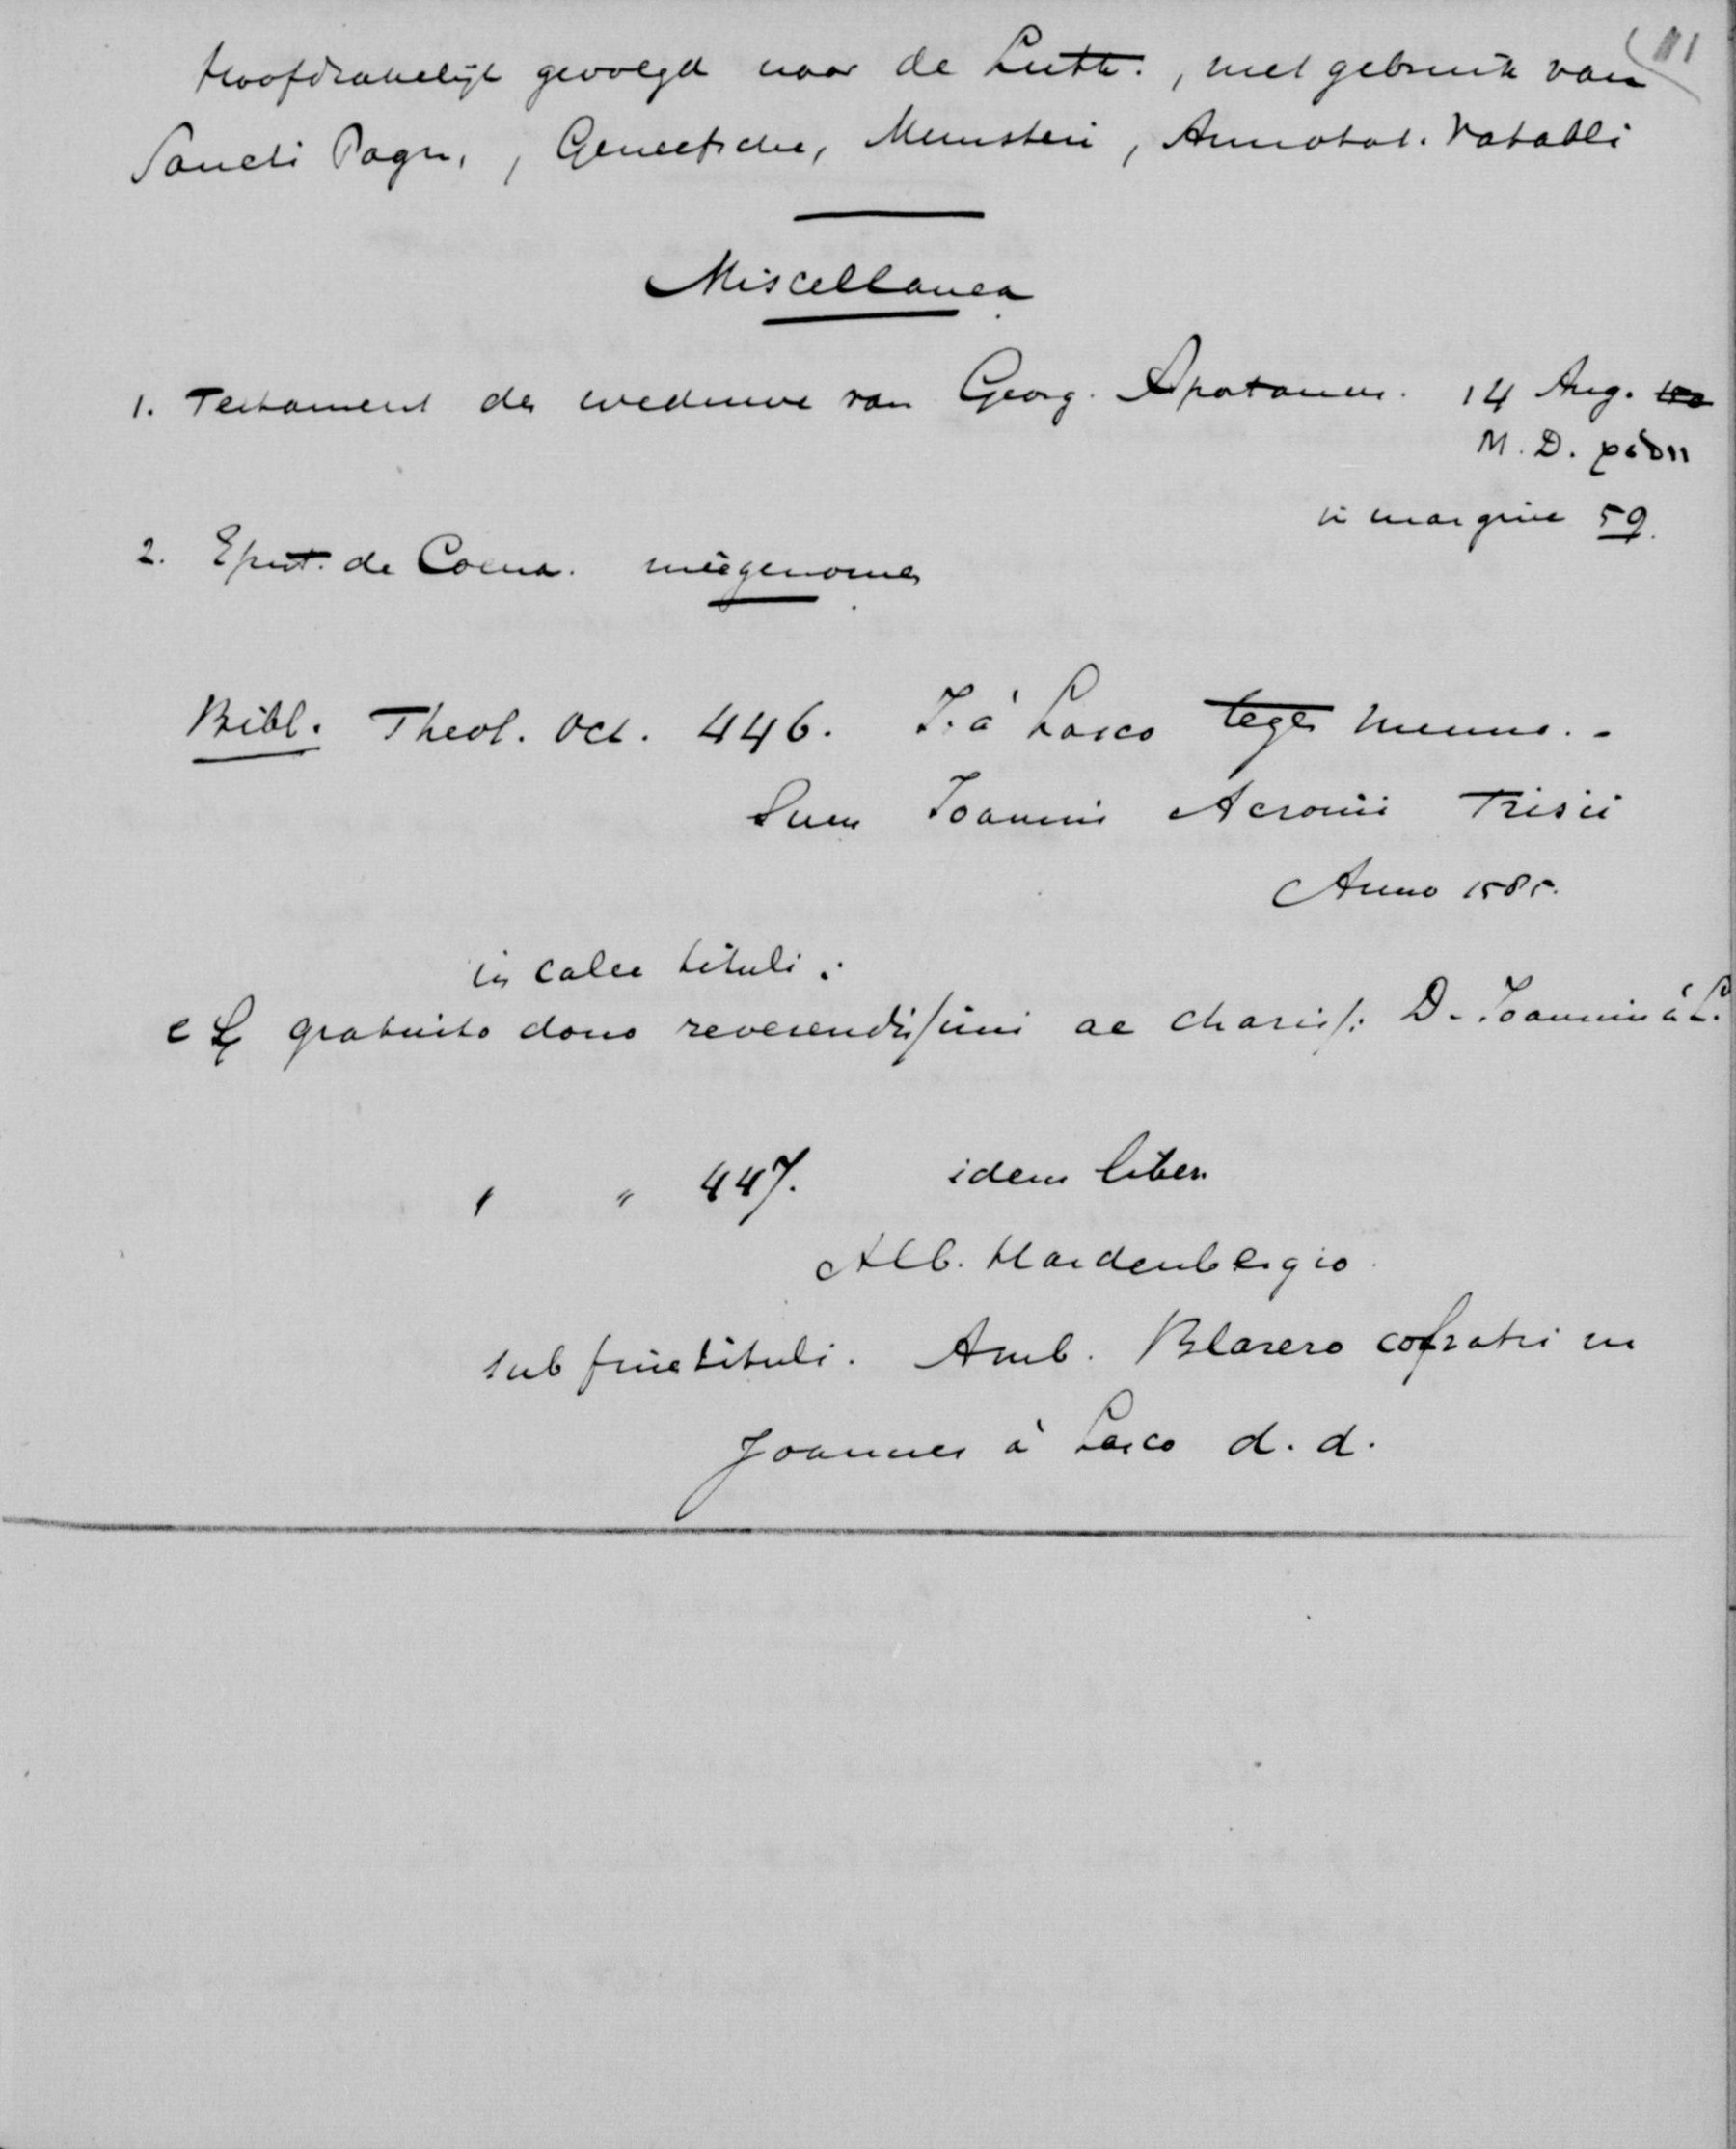 11
Hoofdzakelijk gevolgd naar de Luth., met gebruik van
Sancti Pagn., Geneefsche, Munsteri, Annotat. Vatabli
Miscellanea
1. Testament der weduwe van Georg. Aportanus. 14 Aug.
M. D.
in margine 59.
2. Epist. de Coena. meegenomen
Bibl. Theol. Oct. 446. J. à Lasco tegen Menno. -
Sum Joannis Acronii Frisii
Anno 1585.
in calce tituli:
gratuito dono reverendissimi ac chariss: D. Joannis à L.
" " 447. idem liber
Alb. Hardenbergio.
sub fine tituli. Amb. Blarero cofratri suo
Joannes à Lasco d. d.